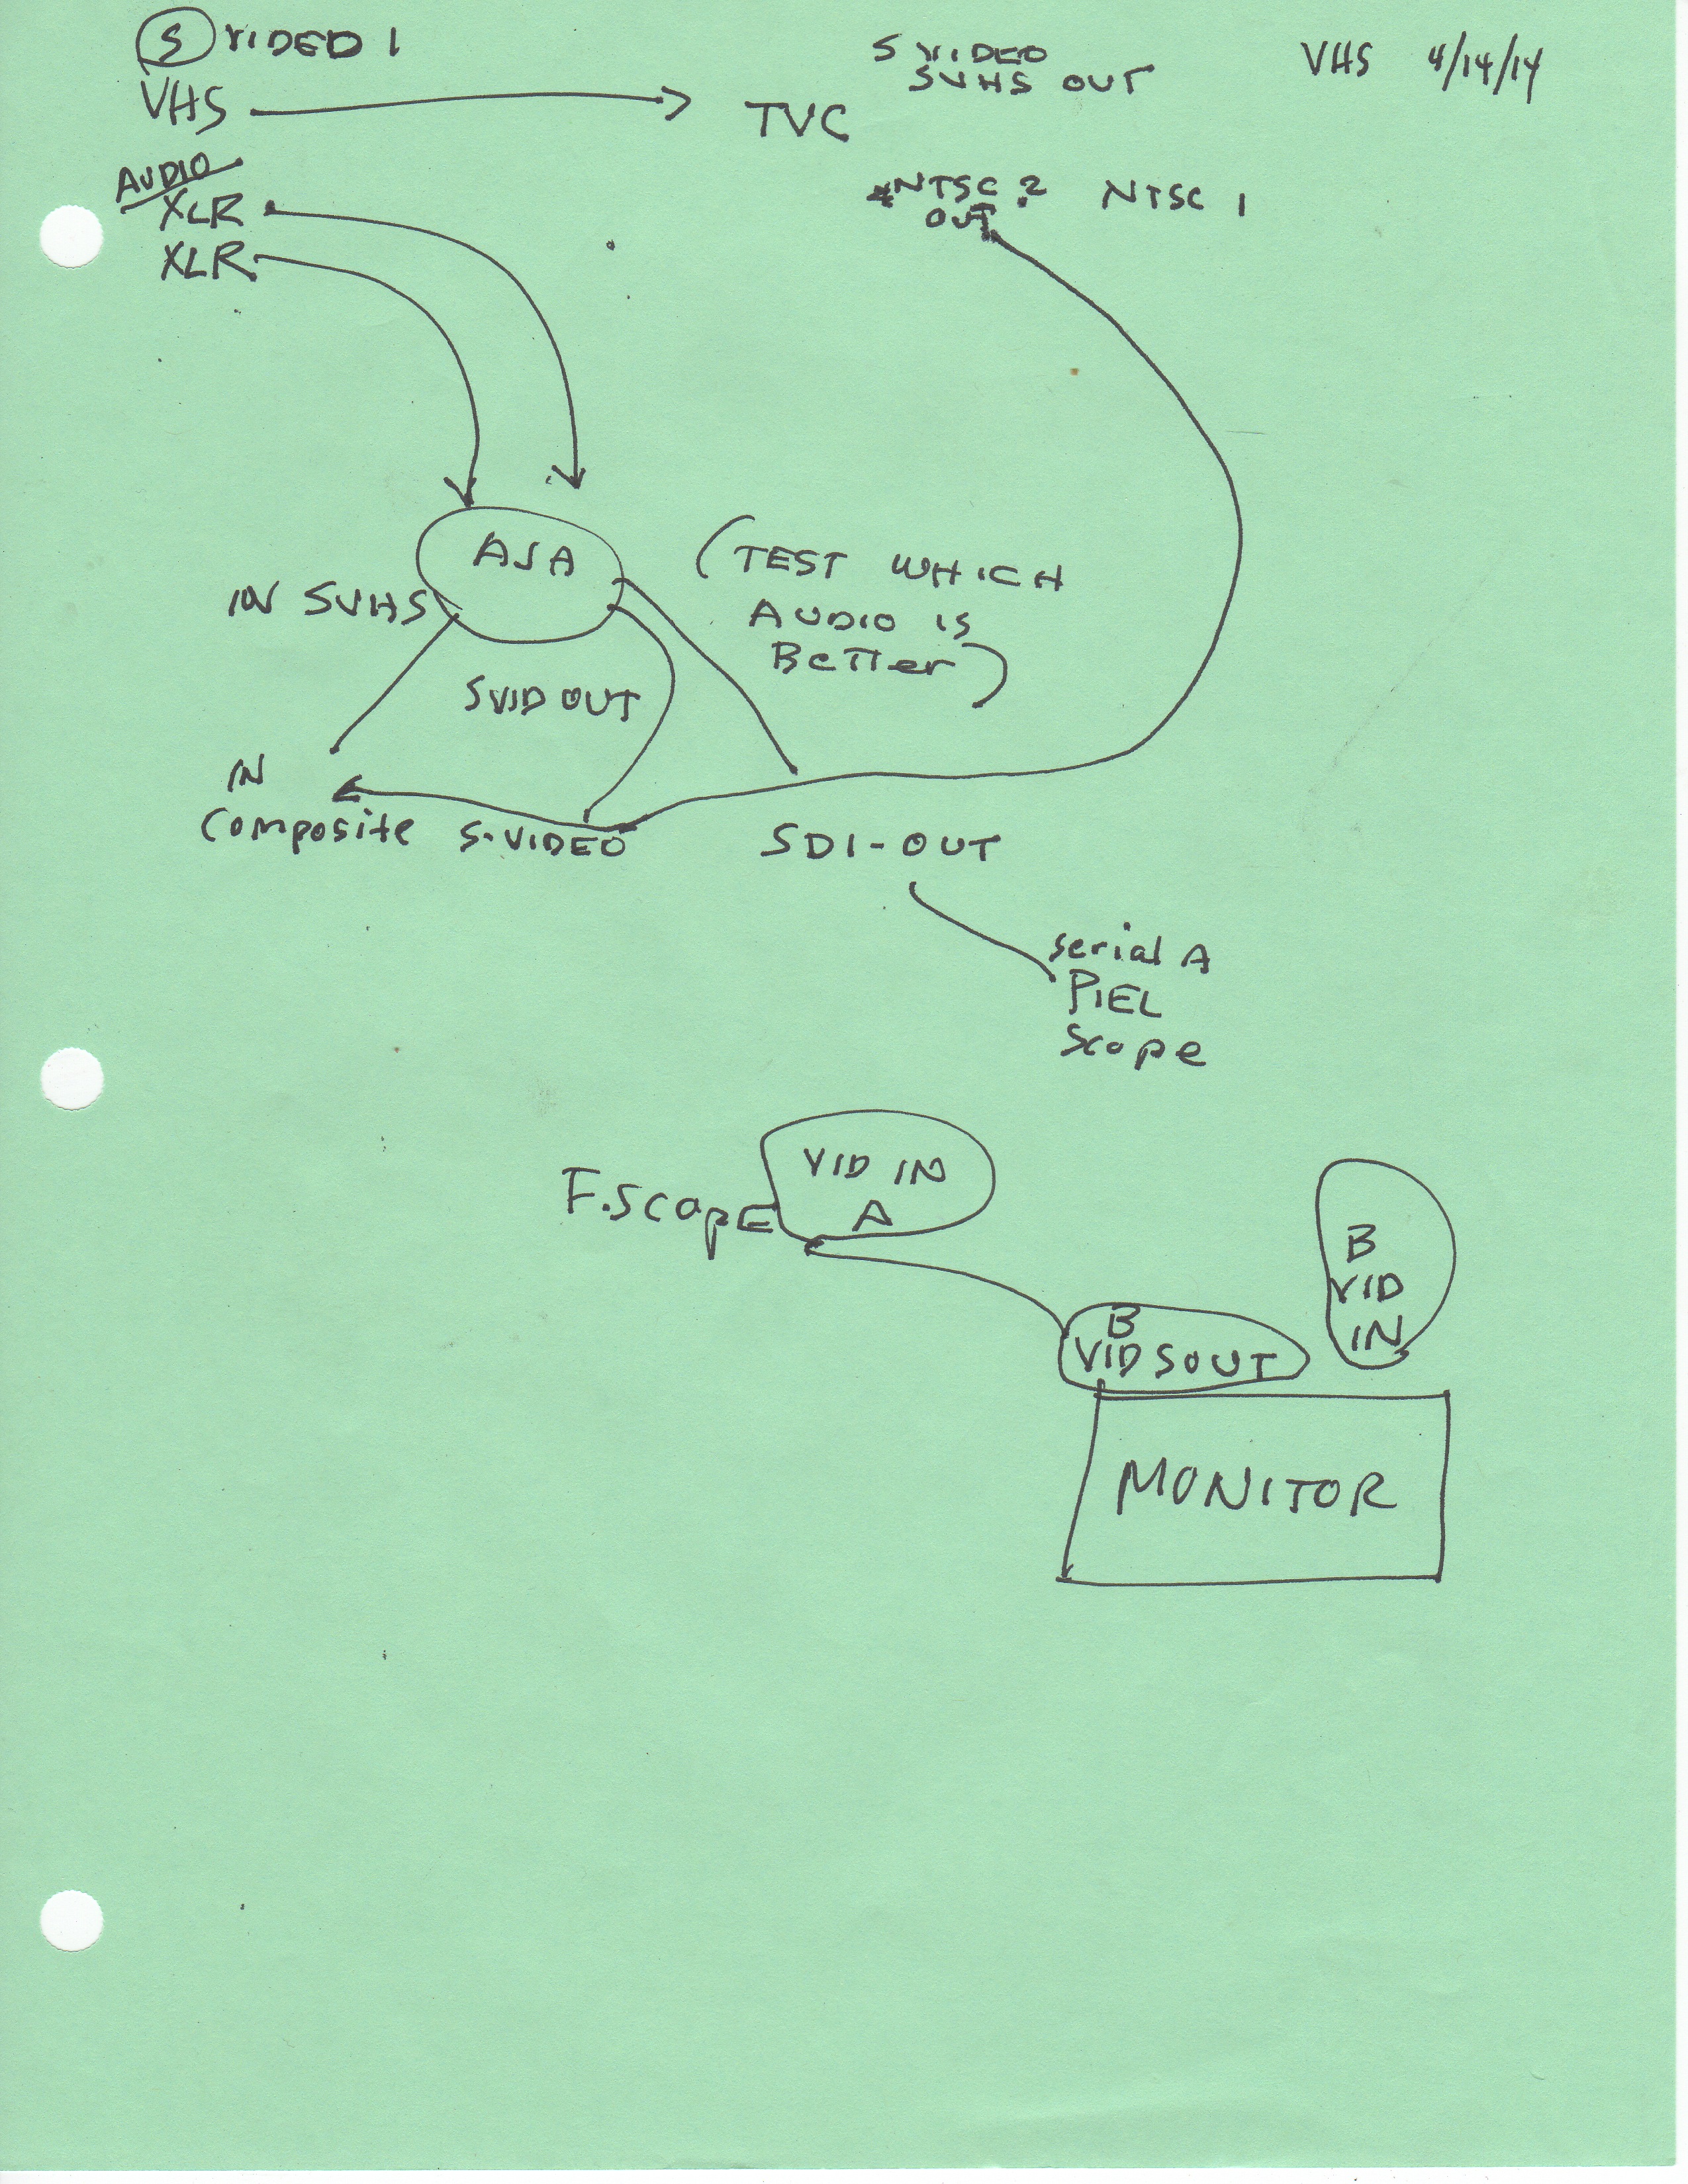 S VIDEO 1
VHS
TVC
S VIDEO
SVHS OUT
VHS 4/14/14
AUDIO
XLR
XLR
NTSC 2 NTSC 1
OUT
AJA
IN SVHS
(TEST WHICH
AUDIO IS
Better)
SVID OUT
IN
Composite S-VIDEO
SDI-OUT
serial A
PIEL
Scope
F.SCOPE
VID IN
A
B
VID
IN
B
VIDSOUT
MONITOR